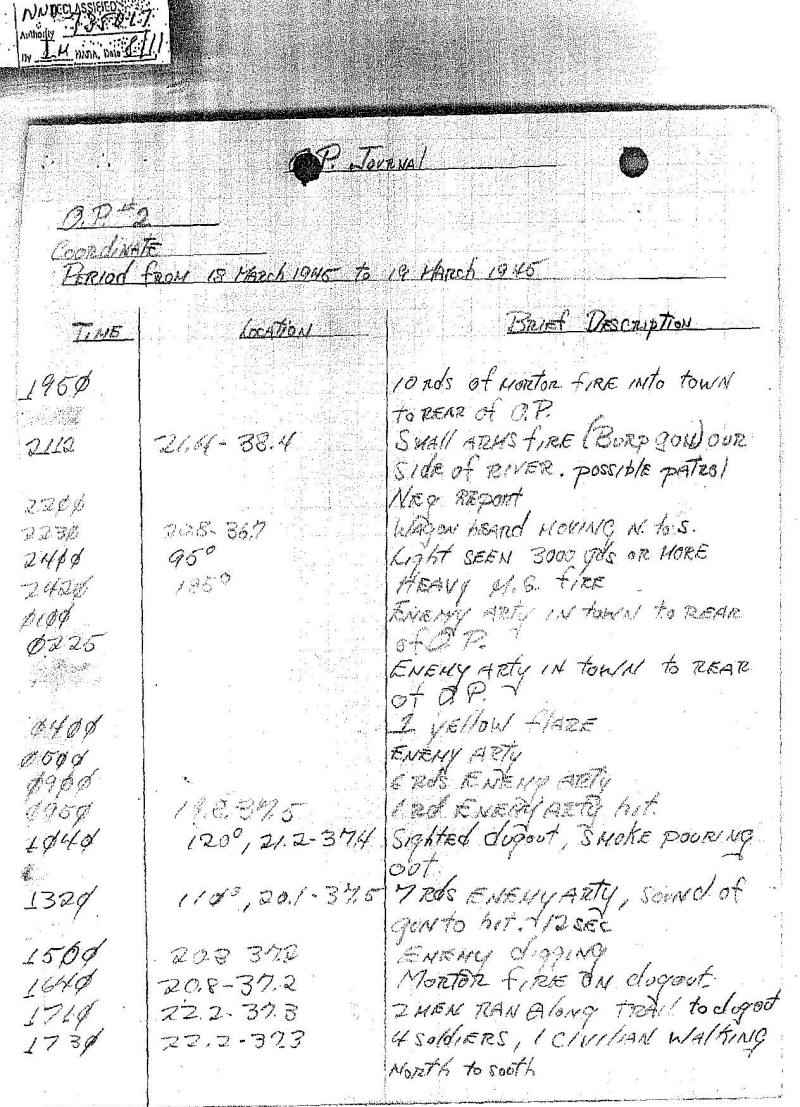 DECLASSIFIED
Authority NND 735017
By NARA, Date
O.P. JOURNAL
O.P. #2
COORDINATE
PERIOD FROM 18 MARCH 1945 to 19 MARCH 1945
TIME LOCATION BRIEF DESCRIPTION
1950 10 rds of MORTOR FIRE INTO TOWN
to REAR of O.P.
2112 21.4-38.4 SMALL ARMS FIRE (BURP GUN) OUR
SIDE of RIVER. possible patrol
2200 NEG REPORT
2230 20.8-36.7 WAGON HEARD MOVING N. to S.
2400 95° LIGHT SEEN 3000 yds OR MORE
2420 185° HEAVY M.G. FIRE
0100 ENEMY ARTY IN TOWN to REAR
0225 of O.P.
ENEMY ARTY IN TOWN to REAR
of O.P.
0400 1 yellow FLARE
0500 ENEMY ARTY
0900 6 rds ENEMY ARTY
0950 37.5 1 rd ENEMY ARTY hit.
1040 120°, 21.2-37.4 Sighted dugout, SMOKE POURING
out.
1320 110°, 20.1-37.5 7 Rds ENEMY ARTY, sound of
gun to hit. 12 SEC
1500 20.8 37.2 ENEMY digging
1640 20.8-37.2 MORTOR FIRE ON dugout.
1710 22.2-37.3 2 MEN RAN Along TRAIL to dugot
1730 22.2-37.3 4 SOLDIERS, 1 CIVILIAN WALKING
NORTH to SOUTH